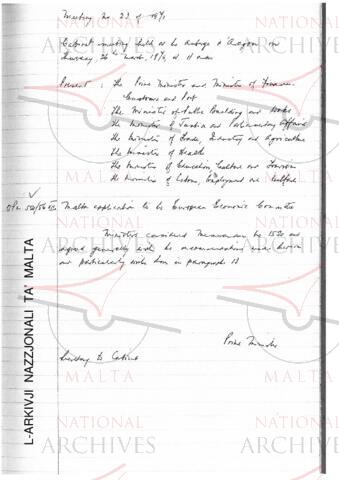 Meeting No 23 of 1971
Cabinet meeting held at the Auberge d'Aragon on
26th March, 1971, at 11 a.m.
Present : the Prime Minister and Minister of Finance
Customs and Port
The Minister of Public Building and Works
the Minister of Justice and Parliamentary Affairs
the Minister of Trade, Industry and Agriculture
the Minister of Health
the Minister of Education, Culture and Tourism
the Minister of Labour, Employment and Welfare
Malta application to the European Economic Community
Ministers considered Memorandum No 1520 and
agreed generally with the recommendations made therein
and particularly with those in paragraph 13
Prime Minister
Secretary to Cabinet
L-ARKIVJI NAZZJONALI TA' MALTA
NATIONAL
ARCHIVES
MALTA